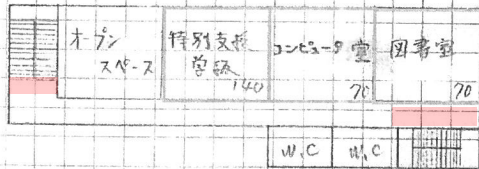 オープン
スペース
特別支援
学級
140
コンピュータ室
70
図書室
70
W.C
W.C